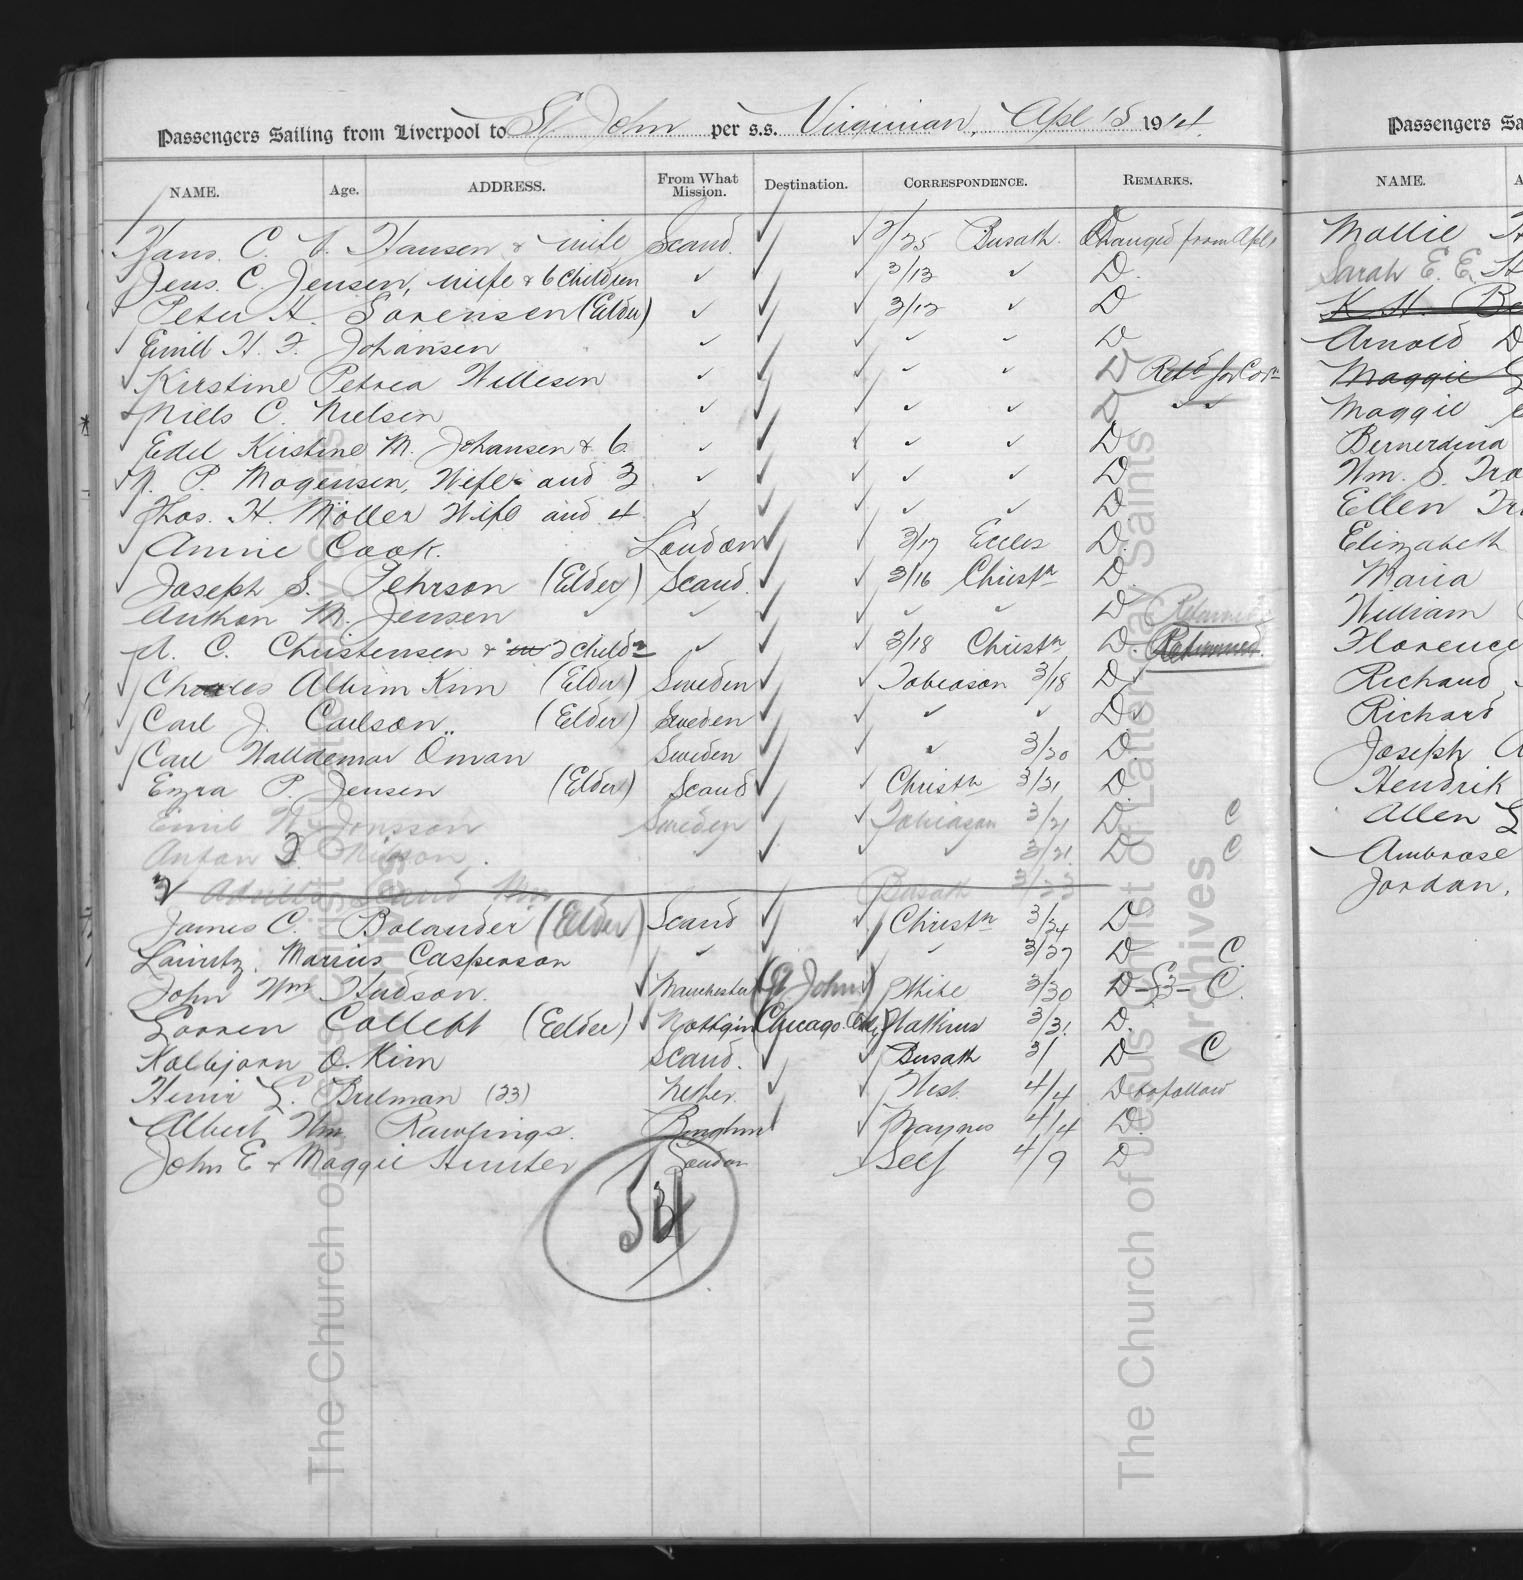 Passengers Sailing from Liverpool to St. John per s.s. Virginian, Apl 15 1914.
NAME. Age. ADDRESS. From What Mission. Destination. CORRESPONDENCE. REMARKS.
Hans. C. Hansen & wife Scand. ✓ ✓ 3/25 Busath. Changed from Apl 1
Jens. C. Jensen, wife & 6 children ✓ ✓ ✓ 3/13 ✓ D.
Peter A. Sorensen (Elder) ✓ ✓ ✓ 3/13 ✓ D
Emill H. F. Johansen ✓ ✓ ✓ ✓ ✓ D
Kirstine Petrea Willesen ✓ ✓ ✓ ✓ ✓ D Retd for Corn
Niels C. Nielsen ✓ ✓ ✓ ✓ ✓ D ✓ ✓
Edel Kirstine M. Johansen & 6 ✓ ✓ ✓ ✓ ✓ D
N. P. Mogensen, Wife and 3 ✓ ✓ ✓ ✓ ✓ D
Thos. H. Möller Wife and 4 ✓ ✓ ✓ ✓ ✓ D
Annie Cook. London ✓ ✓ 3/17 Eccles D.
Joseph S. Fehrson (Elder) Scand. ✓ ✓ 3/16 Christn D
Anthon M. Jensen ✓ ✓ ✓ ✓ ✓ ✓ D Returned
A. C. Christensen & 2 childn ✓ ✓ ✓ 3/18 Christn D. Returned.
Charles Albim Kim (Elder) Sweden ✓ ✓ Tobiason 3/18 D
Carl J. Carlson (Elder) Sweden ✓ ✓ ✓ ✓ D
Carl Walldemar Öman Sweden ✓ ✓ " 3/20 D
Ezra P. Jensen (Elder) Scand ✓ ✓ Christn 3/21 D
Emil W. Jonsson Sweden ✓ ✓ Tobiason 3/21 D. C
Anton Nilsson. ✓ ✓ ✓ ✓ 3/21 D C
3 Adults Scand Busath 3/23
James C. Bolander (Elder) Scand ✓ ✓ Christn 3/24 D
Lauritz. Marius Casperson ✓ ✓ ✓ ✓ 3/27 D C.
John Wm Hudson. Manchester (St. John) White 3/30 D-£3- C.
Lorren Collett (Eelder) Nottgm Chicago. Watkins 3/31. D.
Kolbjorn O. Kim Scand. ✓ ✓ Busath 3/ D C
Henri L. Bulman (23) Nether. ✓ ✓ West. 4/4 D to follow
Albert Wm. Rawlings. ✓ ✓ Maynes 4/4 D.
John E & Maggie Hunter London ✓ Self 4/9 D
Passengers Sa
NAME. A
Mollie
Sarah E. E.
K. H. Be
Arnold D
Maggie
Maggie
Bernerdina
Wm. S. Tra
Ellen Tr
Elizabeth
Maria
William
Florence
Richard
Richard
Joseph
Hendrik
Allen
Ambrose
Jordan,
The Church of Jesus Christ of Latter-day Saints
Archives
The Church of Jesus Christ of Latter-day Saints
Archives